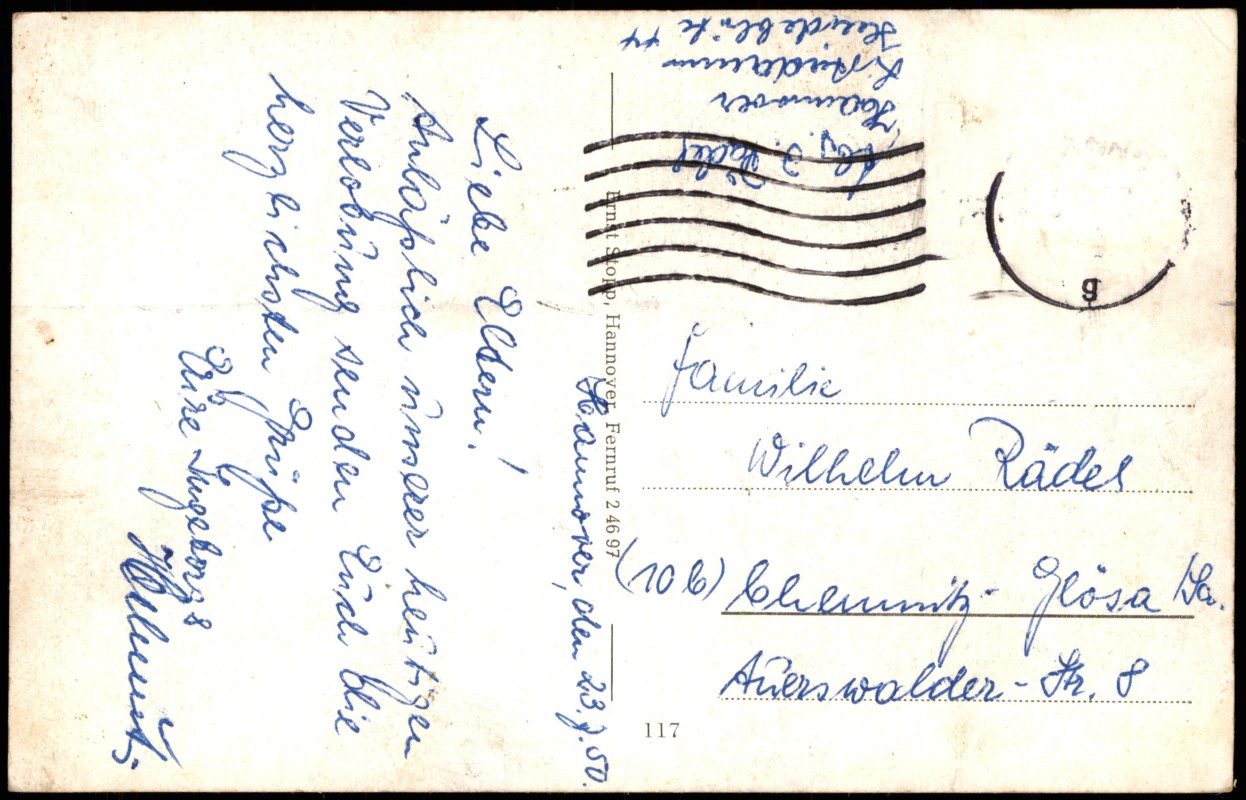 Hannover, den 23.7.50.
Liebe Eltern!
Anläßlich unser heutigen
Verlobung senden Euch die
herzlichsten Grüße
Eure Ingeborg &
Helmut.
Abs. J. Rädel
Hannover
Ernst Stopp, Hannover Fernruf 2 46 97
g
Familie
Wilhelm Rädel
(10 b) Chemnitz - Glösa /Sa.
Auerswalder - Str. 8
117